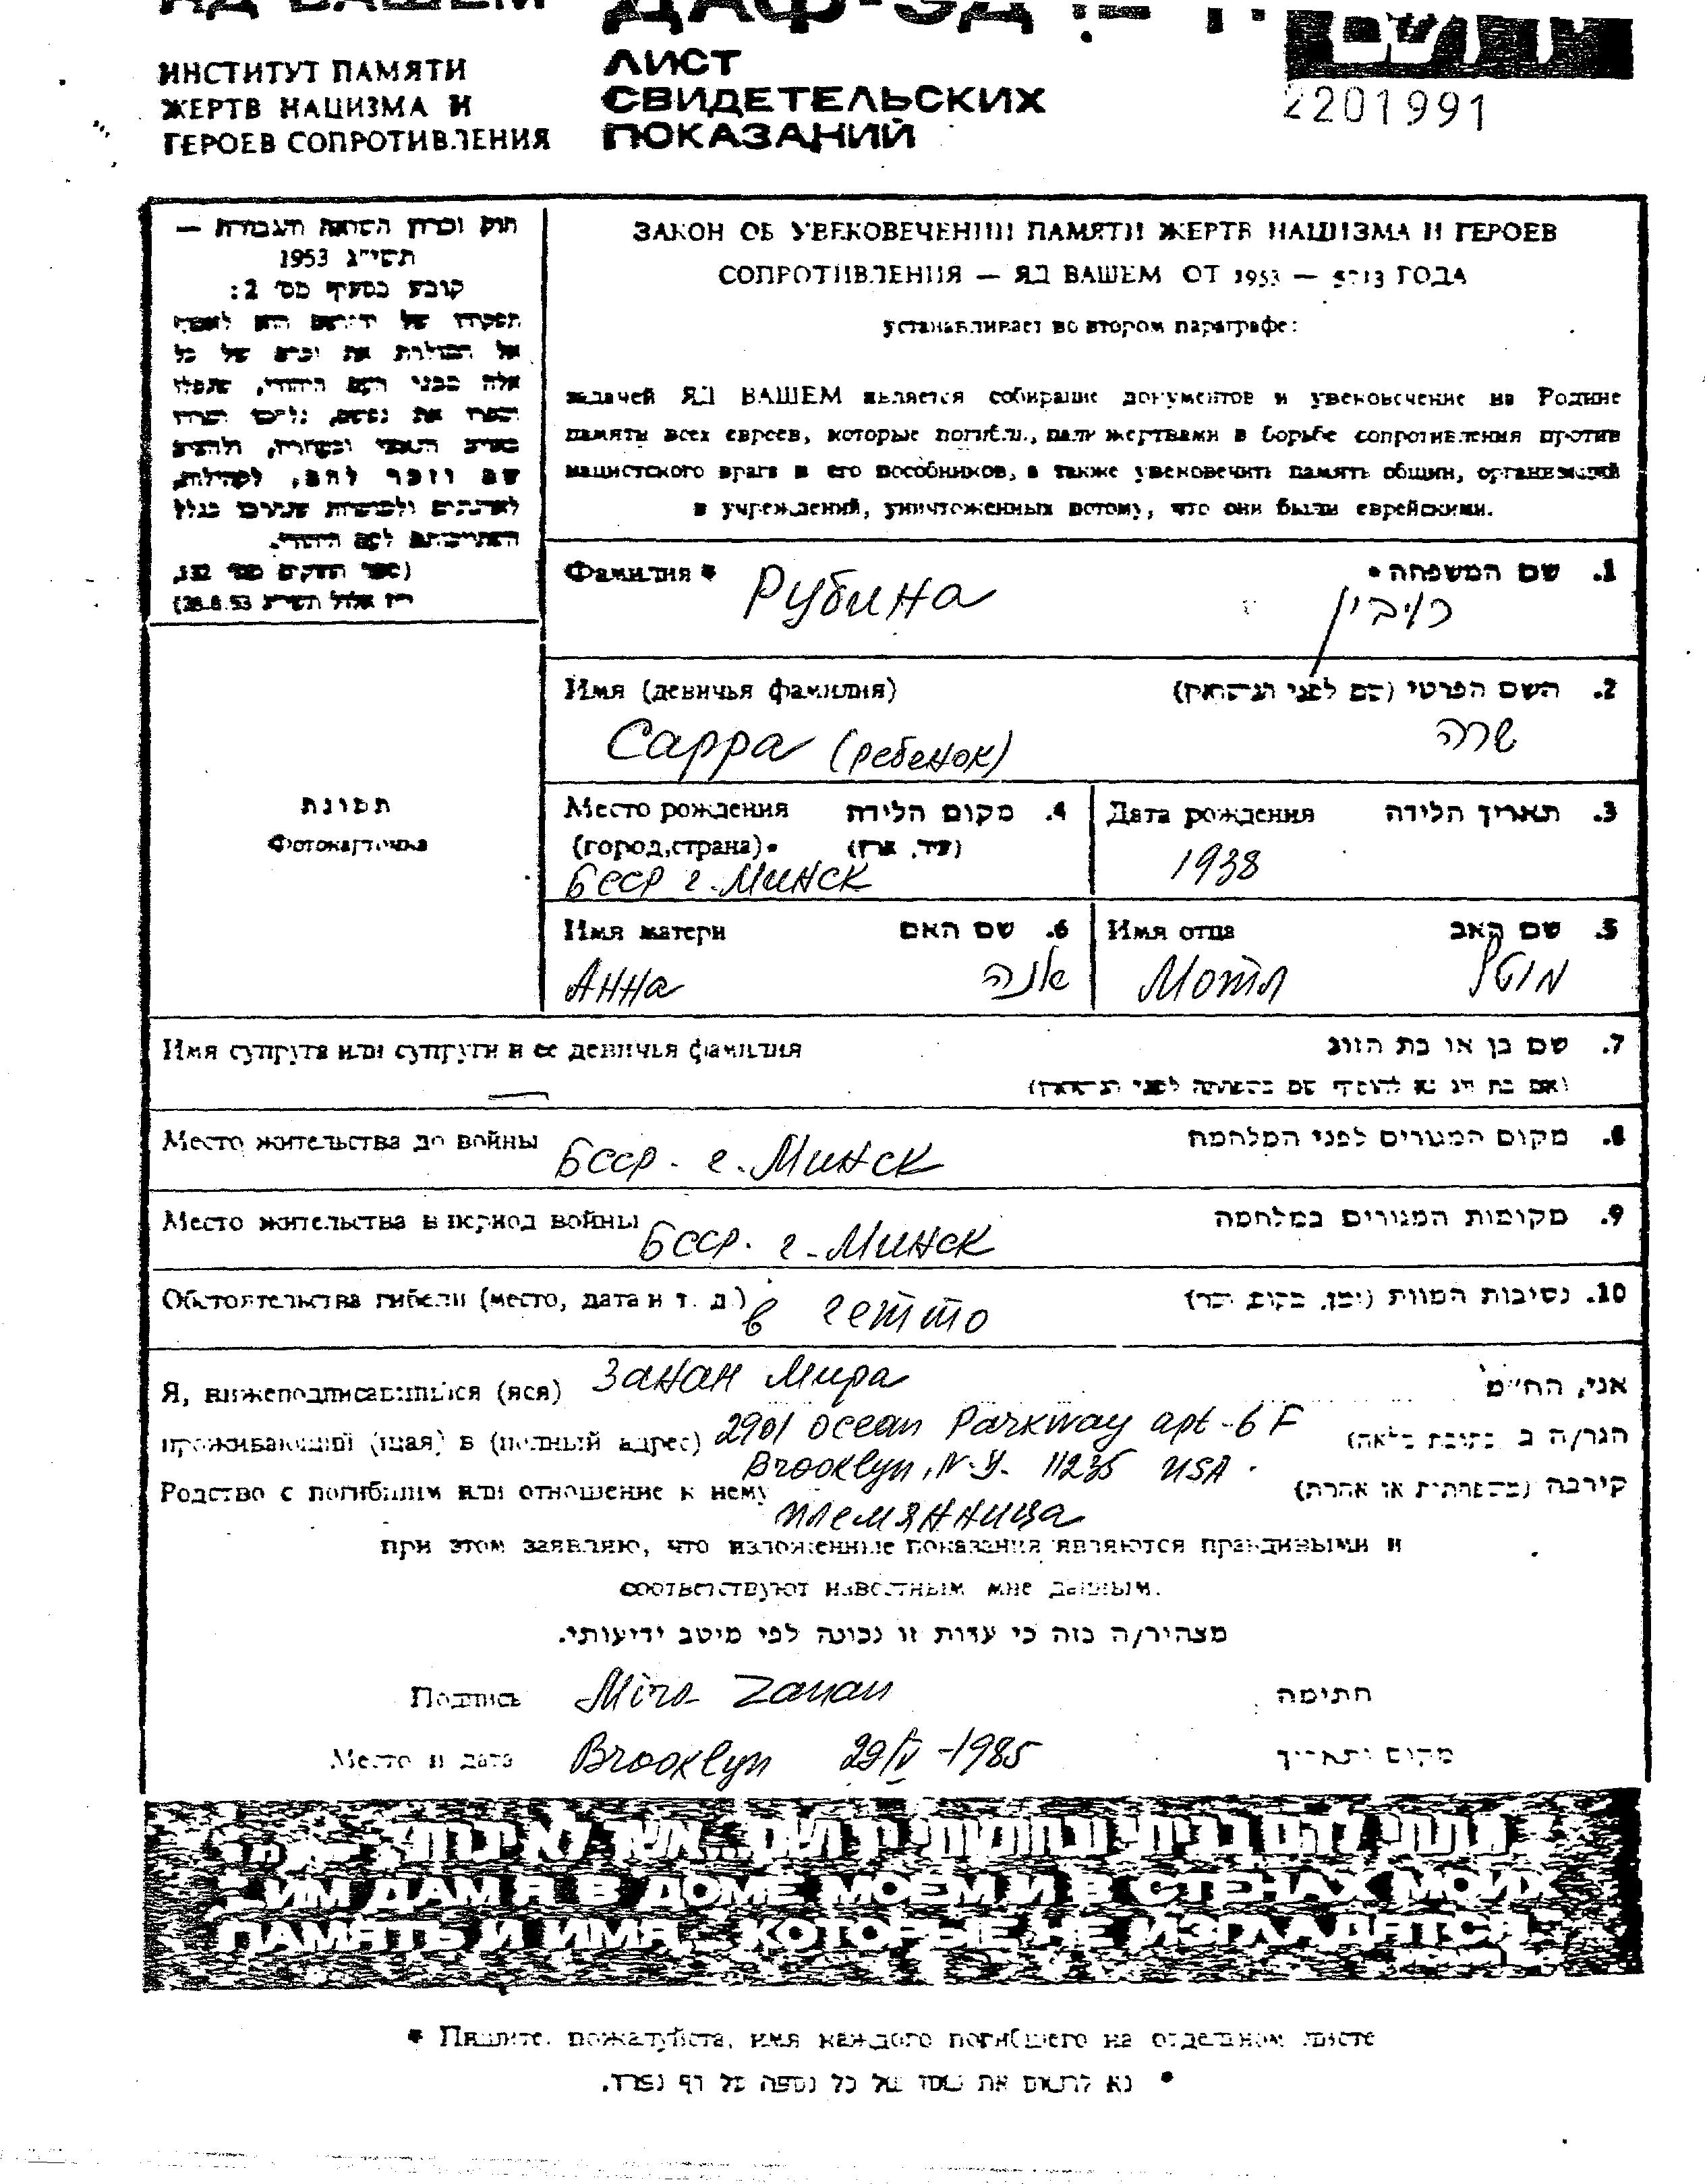 ЯД ВАШЕМ
ДАФ-ЭД
ИНСТИТУТ ПАМЯТИ
ЖЕРТВ НАЦИЗМА И
ГЕРОЕВ СОПРОТИВЛЕНИЯ
ЛИСТ
СВИДЕТЕЛЬСКИХ
ПОКАЗАНИЙ
2201991
חוק זכרון השואה והגבורה —
תשי״ג 1953
קובע בסעיף מס׳ 2:
תפקידו של יד־ושם הוא לאסוף
אל המולדת את זכרם של כל
אלה מבני העם היהודי, שנפלו
ומסרו את נפשם, נלחמו ומרדו
באויב הנאצי ובעוזריו, ולהציב
שם וזכר להם, לקהילות,
לארגונים ולמוסדות שנחרבו בגלל
השתייכותם לעם היהודי.
(ספר החוקים מס׳ 132,
י״ז אלול תשי״ג 28.8.53)
ЗАКОН ОБ УВЕКОВЕЧЕНИИ ПАМЯТИ ЖЕРТВ НАЦИЗМА И ГЕРОЕВ
СОПРОТИВЛЕНИЯ — ЯД ВАШЕМ ОТ 1953 — 5713 ГОДА
устанавливает во втором параграфе:
задачей ЯД ВАШЕМ является собирание документов и увековечение на Родине
памяти всех евреев, которые погибли, пали жертвами в борьбе сопротивления против
нацистского врага и его пособников, а также увековечить память общин, организаций
и учреждений, уничтоженных потому, что они были еврейскими.
Фамилия * Рубина
1. שם המשפחה *
רובין
Имя (девичья фамилия)
2. השם הפרטי (שם לפני הנישואין)
Сарра (ребенок)
שרה
Место рождения 4. מקום הלידה
(город,страна)* (עיר, ארץ)
БССР г. Минск
Дата рождения 3. תאריך הלידה
1938
Имя матери 6. שם האם
Анна אנה
Имя отца 5. שם האב
Мотл מוטל
תמונה
Фотокарточка
Имя супруга или супруги и ее девичья фамилия 7. שם בן או בת הזוג
(אם בת זוג נא להוסיף שם משפחה לפני הנישואין)
Место жительства до войны БССР. г. Минск 8. מקום המגורים לפני המלחמה
Место жительства в период войны БССР. г. Минск 9. מקומות המגורים במלחמה
Обстоятельства гибели (место, дата и т. д.) в гетто 10. נסיבות המוות (זמן, מקום וכו׳)
Я, нижеподписавшийся (яся) Занан Мира אני, הח״מ
проживающий (щая) в (полный адрес) 2901 Ocean Parkway apt-6F הגר/ה ב (כתובת מלאה)
Brooklyn, N.Y. 11235 USA.
Родство с погибшим или отношение к нему племянница קירבה (משפחתית או אחרת)
при этом заявляю, что изложенные показания являются правдивыми и
соответствуют известным мне данным.
מצהיר/ה בזה כי עדות זו נכונה לפי מיטב ידיעותי.
Подпись Mira Zanan חתימה
Место и дата Brooklyn 29/IV-1985 מקום ותאריך
ИМ ДАМ Я В ДОМЕ МОЕМ И В СТЕНАХ МОИХ
ПАМЯТЬ И ИМЯ, КОТОРЫЕ НЕ ИЗГЛАДЯТСЯ
* Пишите, пожалуйста, имя каждого погибшего на отдельном листе
* נא לרשום את שמו של כל נספה על דף נפרד.